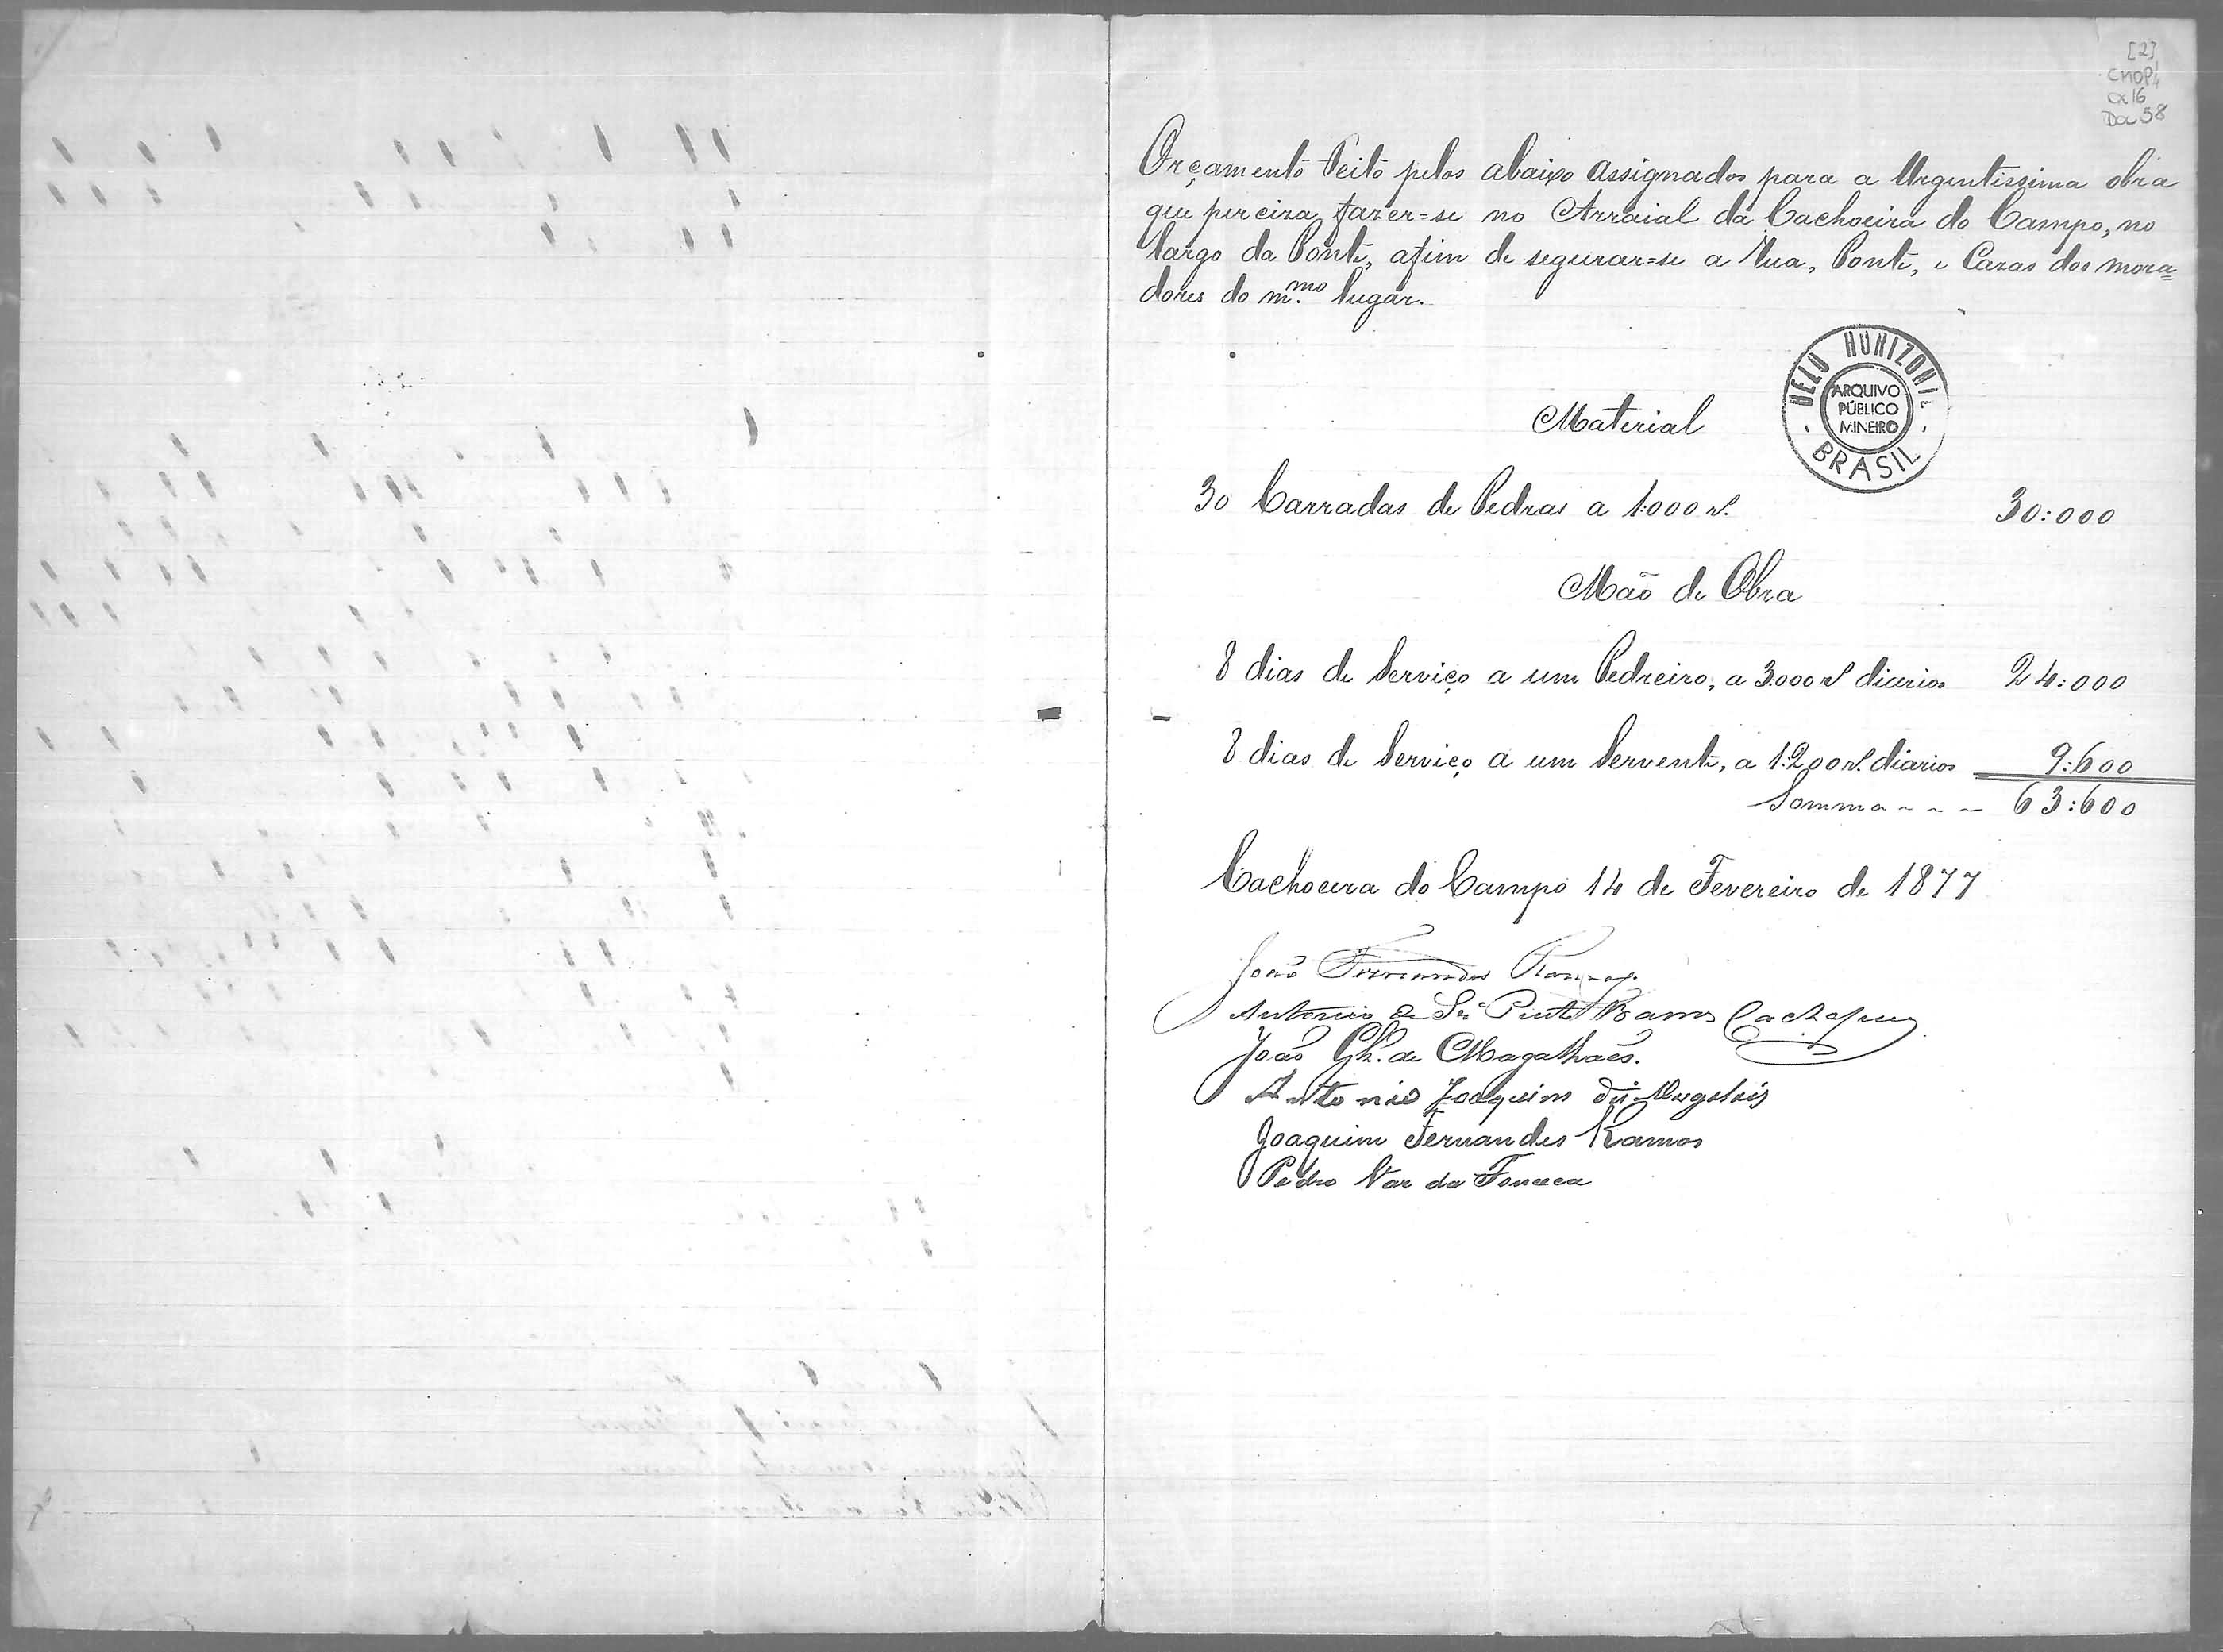 [2]
CMOP1/4
Cx 16
Doc 58
Orçamento Feito pelos abaixo assignados para a Urgentissima obra
que perciza fazer=se no Arraial da Cachoeira do Campo, no
Largo da Ponte, afim de segurar=se a Rua, Ponte, e Cazas dos mora=
dores do m.mo Lugar.
BELO HORIZONTE
ARQUIVO
PÚBLICO
MINEIRO
BRASIL
Material
30 Carradas de Pedras a 1:000 rs. 30:000
Mão de Obra
8 dias de Serviço a um Pedreiro, a 3:000 rs diarios 24:000
8 dias de Serviço a um Servente, a 1:200 rs. diarios 9:600
Somma - - - 63:600
Cachoeira do Campo 14 de Fevereiro de 1877
João Fernandes Ramos
Antonio de Sá Pinto Ramos
João Glz. de Magalhães.
Antonio Joaquim de Magalhais
Joaquim Fernandes Ramos
Pedro Vaz da Fonseca